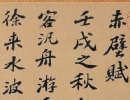 赤壁賦
壬戌之秋
客汎舟游
徐来水波